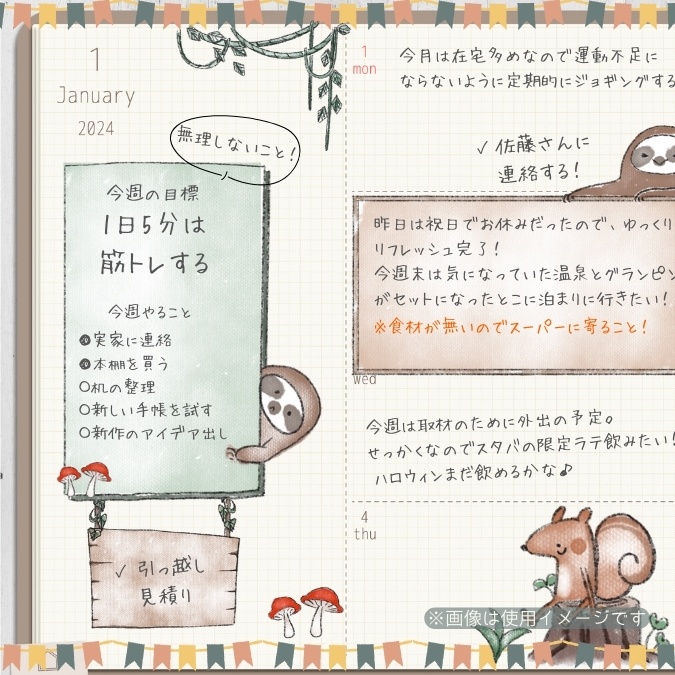 1
January
2024
無理しないこと!
今週の目標
1日5分は
筋トレする
今週やること
実家に連絡
本棚を買う
机の整理
新しい手帳を試す
新作のアイデア出し
✓ 引っ越し
見積り
1
mon
今月は在宅多めなので運動不足に
ならないように定期的にジョギングする
✓ 佐藤さんに
連絡する!
昨日は祝日でお休みだったので、ゆっくり
リフレッシュ完了!
今週末は気になっていた温泉とグランピン
がセットになったとこに泊まりに行きたい!
※食材が無いのでスーパーに寄ること!
wed
今週は取材のために外出の予定。
せっかくなのでスタバの限定ラテ飲みたい!
ハロウィンまだ飲めるかな♪
4
thu
※画像は使用イメージです